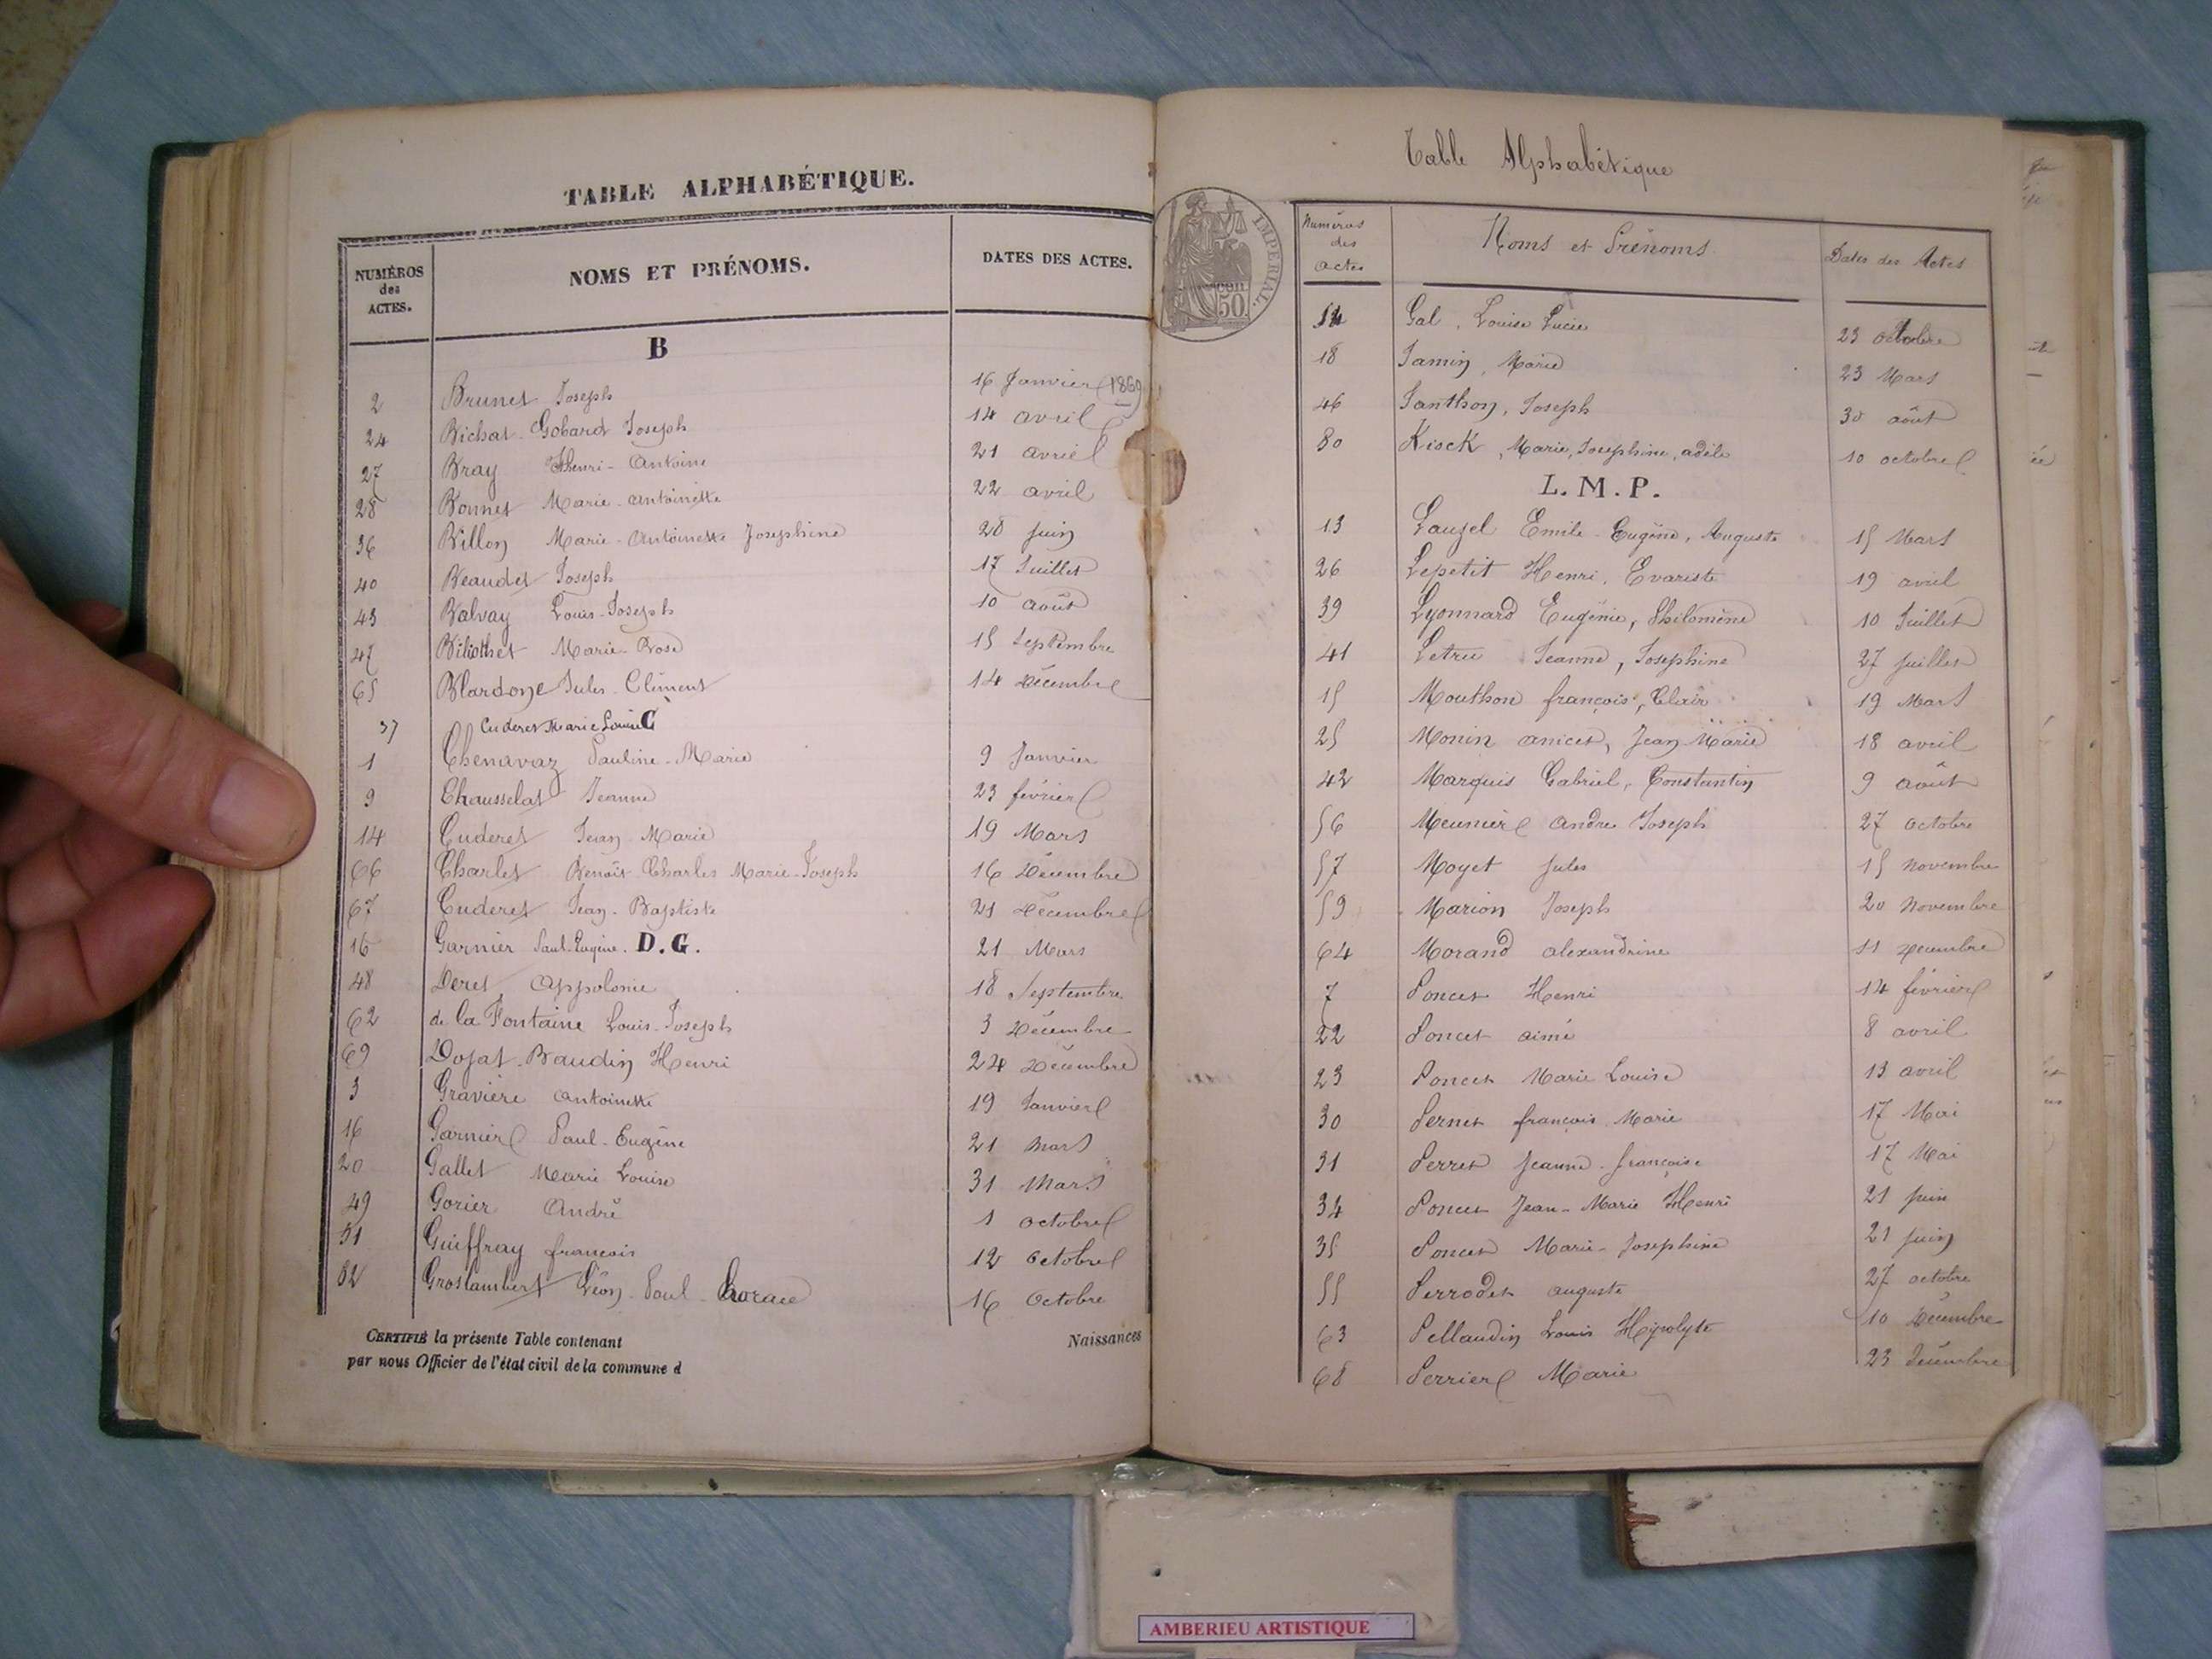 TABLE ALPHABÉTIQUE.
NUMÉROS des ACTES. NOMS ET PRÉNOMS. DATES DES ACTES.
B
2 Brunet Joseph 16 Janvier (1869)
24 Bichat-Gobard Joseph 14 avril
27 Bray Henri-Antoine 21 avril
28 Bonnet Marie-Antoinette 22 avril
36 Billon Marie-Antoinette Josephine 28 juin
40 Beaudet Joseph 17 Juillet
43 Balvay Louis-Joseph 10 août
47 Biliothet Marie-Rose 15 Septembre
65 Blardone Jules-Clément 14 Décembre
37 Cuderet Marie Louise C
1 Chenavaz Pauline-Marie 9 Janvier
9 Chausselat Jeanne 23 février
14 Cuderet Jean-Marie 19 Mars
66 Charlet Benoit-Charles Marie-Joseph 16 Décembre
67 Cuderet Jean-Baptiste 21 Décembre
16 Garnier Paul-Eugène. D.G. 21 Mars
48 Deret Appolonie 18 Septembre
62 de la Fontaine Louis-Joseph 3 Décembre
69 Dojat-Baudin Henri 24 Décembre
3 Gravière Antoinette 19 Janvier
16 Garnier Paul-Eugène 21 Mars
20 Gallet Marie Louise 31 Mars
49 Gorier André 1 octobre
51 Guiffray françois 12 octobre
52 Groslambert Léon-Paul-horace 16 Octobre
CERTIFIÉ la présente Table contenant Naissances
par nous Officier de l'état civil de la commune d
Table Alphabétique
IMPERIAL.
50
Numéros des actes Noms et Prénoms Dates des Actes
54 Gal, Louise Lucie 23 octobre
18 Jamin, Marie 23 Mars
46 Janthon, Joseph 30 août
80 Kisck, Marie, Josephine, adèle 10 octobre
L.M.P.
13 Lauzel Emile-Eugène, Auguste 15 Mars
26 Lepetit Henri, Evariste 19 avril
39 Lyonnard Eugénie, Philomène 10 Juillet
41 Letru Jeanne, Josephine 27 juillet
15 Mouthon françois, Clair 19 Mars
25 Monin anicet, Jean Marie 18 avril
42 Marquis Gabriel, Constantin 9 août
56 Meunier andre Joseph 27 octobre
57 Moyet Jules 15 novembre
59 Marion Joseph 20 novembre
64 Morand alexandrine 11 Decembre
7 Poncet Henri 14 février
22 Poncet aimé 8 avril
23 Poncet Marie Louise 13 avril
30 Pernet françois Marie 17 Mai
31 Perret Jeanne-françoise 17 Mai
34 Poncet Jean-Marie Henri 21 juin
35 Poncet Marie-Josephine 21 juin
55 Perrodet auguste 27 octobre
63 Pellaudin Louis Hipolyte 10 Décembre
68 Perrier Marie 23 Décembre
AMBERIEU ARTISTIQUE